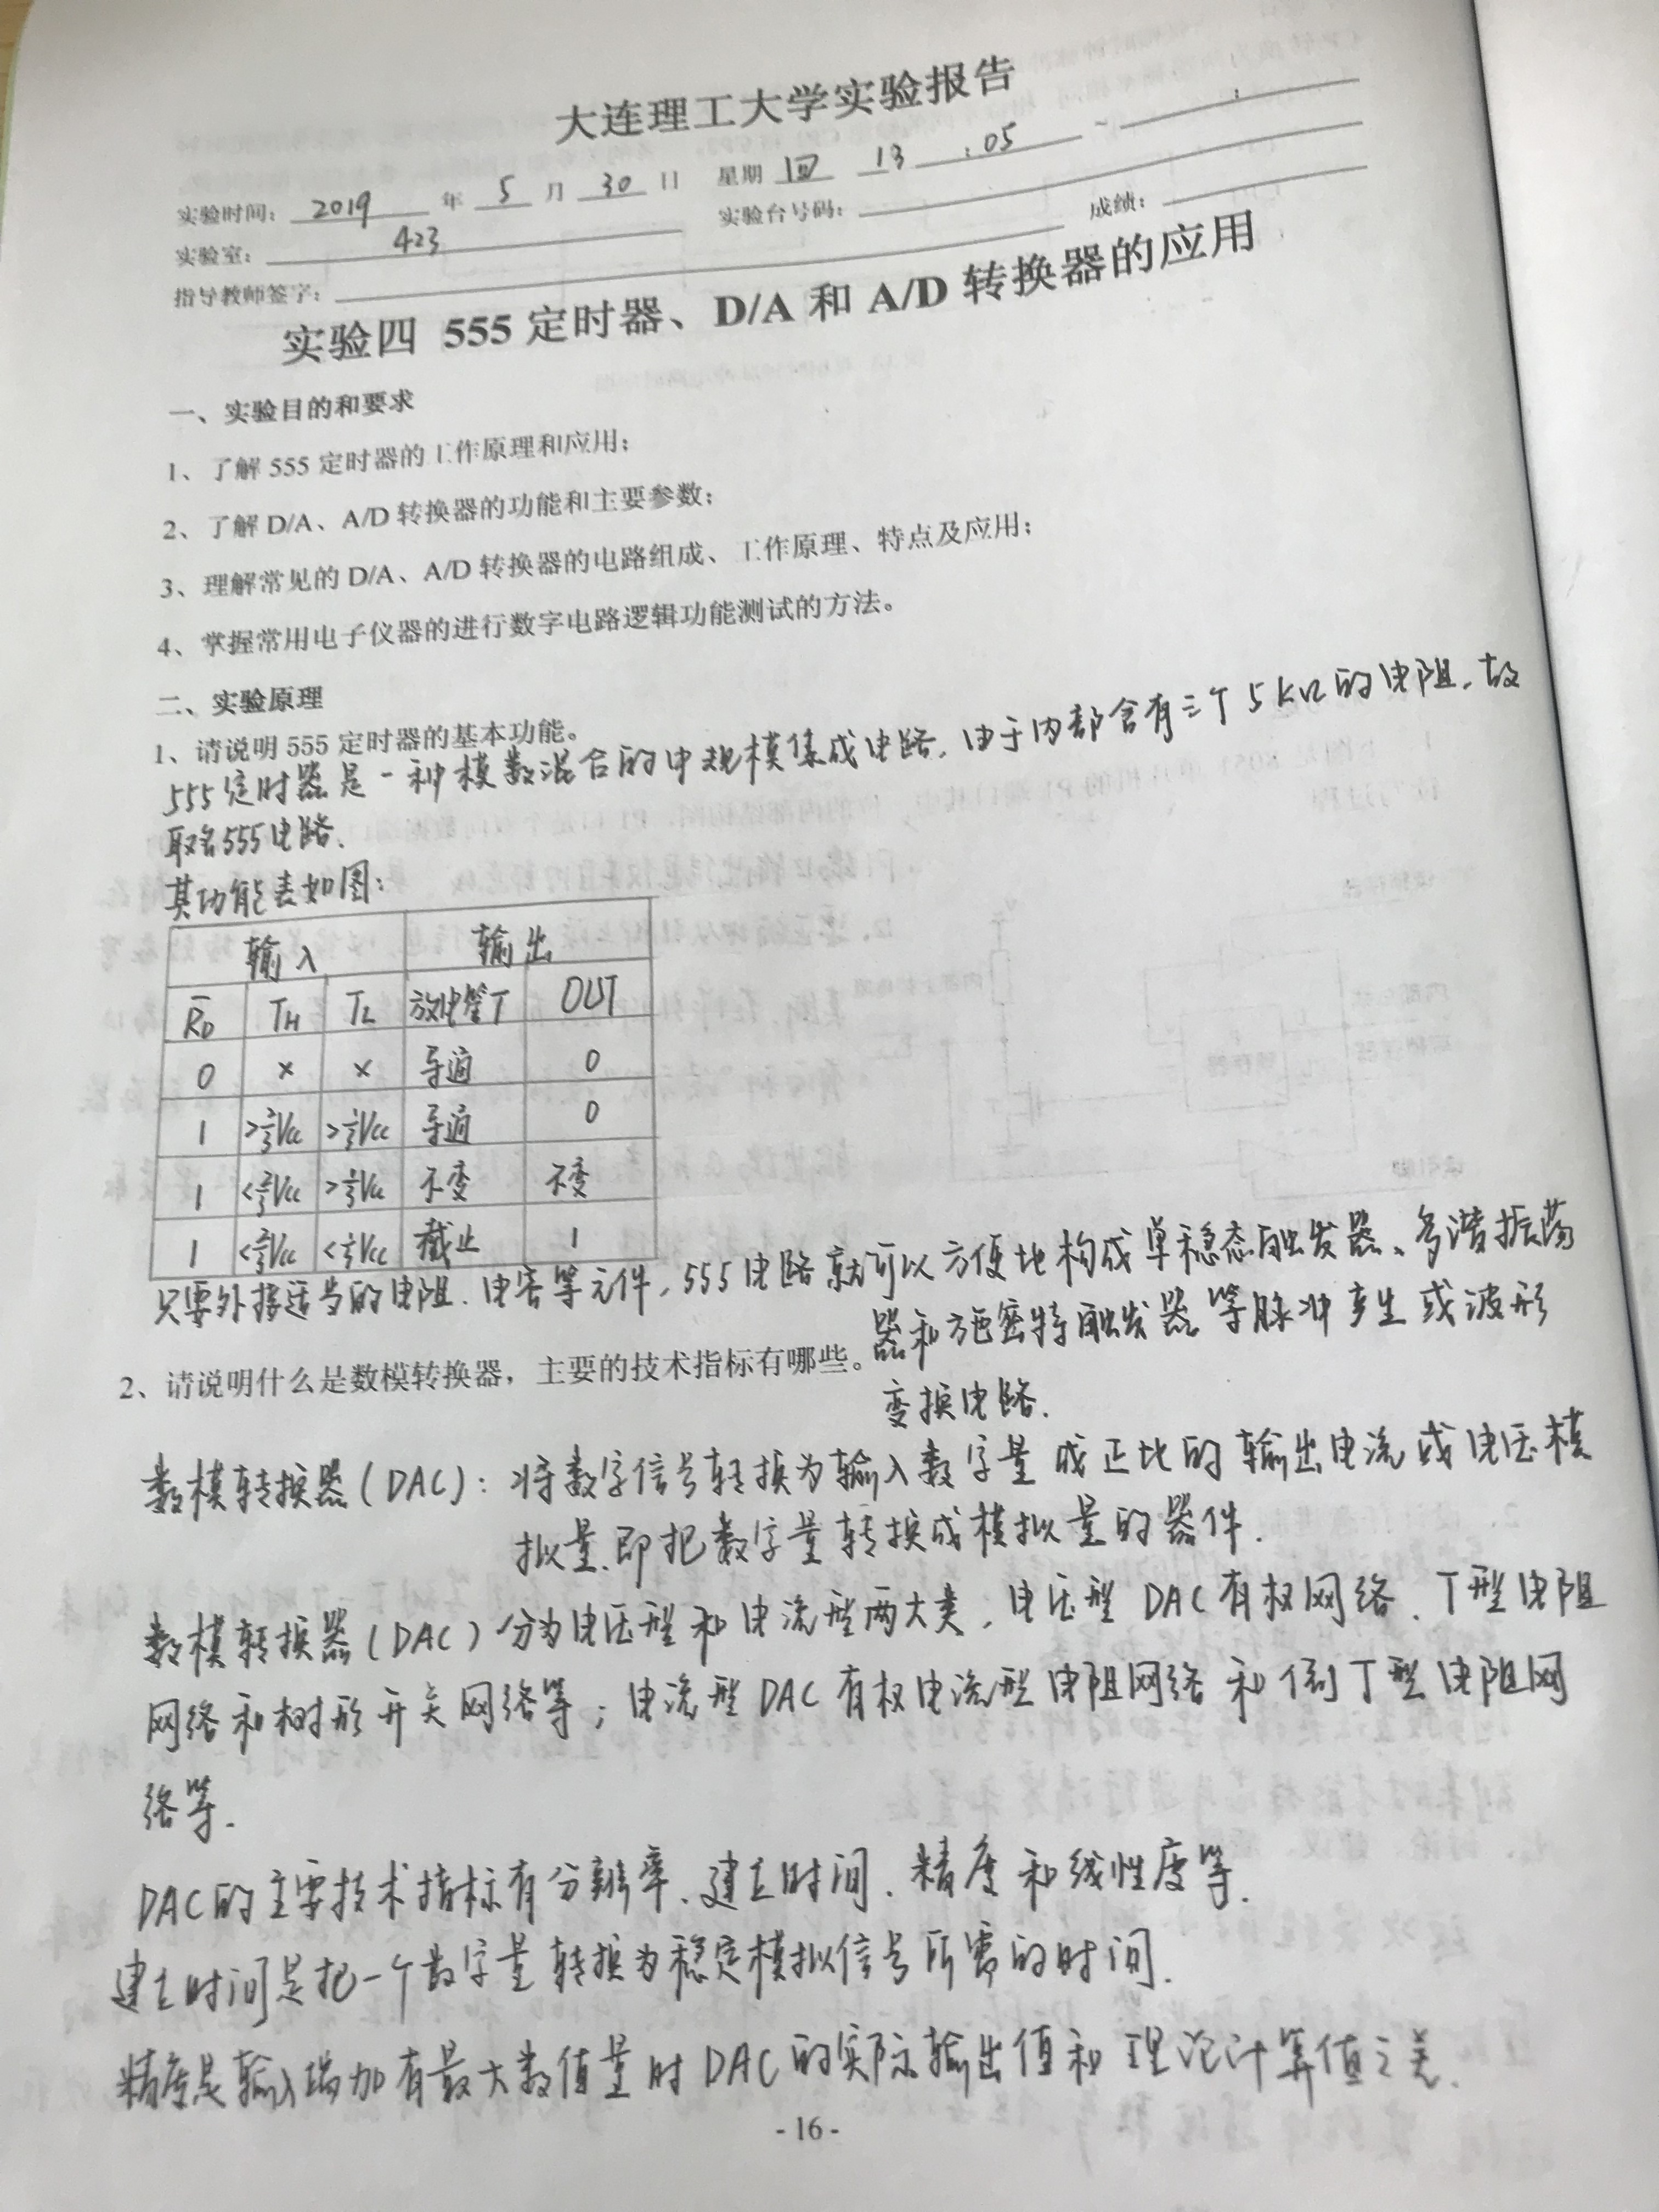 大连理工大学实验报告
实验时间: 2019 年 5 月 30 日 星期 四 13 : 05 ~ :
实验室: 423 实验台号码:
指导教师签字: 成绩:
实验四 555 定时器、D/A 和 A/D 转换器的应用
一、实验目的和要求
1、了解 555 定时器的工作原理和应用;
2、了解 D/A、A/D 转换器的功能和主要参数;
3、理解常见的 D/A、A/D 转换器的电路组成、工作原理、特点及应用;
4、掌握常用电子仪器的进行数字电路逻辑功能测试的方法。
二、实验原理
1、请说明 555 定时器的基本功能。
555定时器是一种模数混合的中规模集成电路. 由于内部含有三个5KΩ的电阻, 故
取名555电路.
其功能表如图:
输入 输出
R̅D TH TL 放电管T OUT
0 × × 导通 0
1 >2/3Vcc >1/3Vcc 导通 0
1 <2/3Vcc >1/3Vcc 不变 不变
1 <2/3Vcc <1/3Vcc 截止 1
只要外接适当的电阻、电容等元件, 555电路就可以方便地构成单稳态触发器、多谐振荡
器和施密特触发器等脉冲产生或波形
变换电路.
2、请说明什么是数模转换器，主要的技术指标有哪些。
数模转换器(DAC): 将数字信号转换为输入数字量成正比的输出电流或电压模
拟量.即把数字量转换成模拟量的器件.
数模转换器(DAC)分为电压型和电流型两大类, 电压型DAC有权网络、T型电阻
网络和树形开关网络等; 电流型DAC有权电流型电阻网络和倒T型电阻网
络等.
DAC的主要技术指标有分辨率、建立时间、精度和线性度等.
建立时间是把一个数字量转换为稳定模拟信号所需的时间.
精度是输入端加有最大数值量时DAC的实际输出值和理论计算值之差.
- 16 -